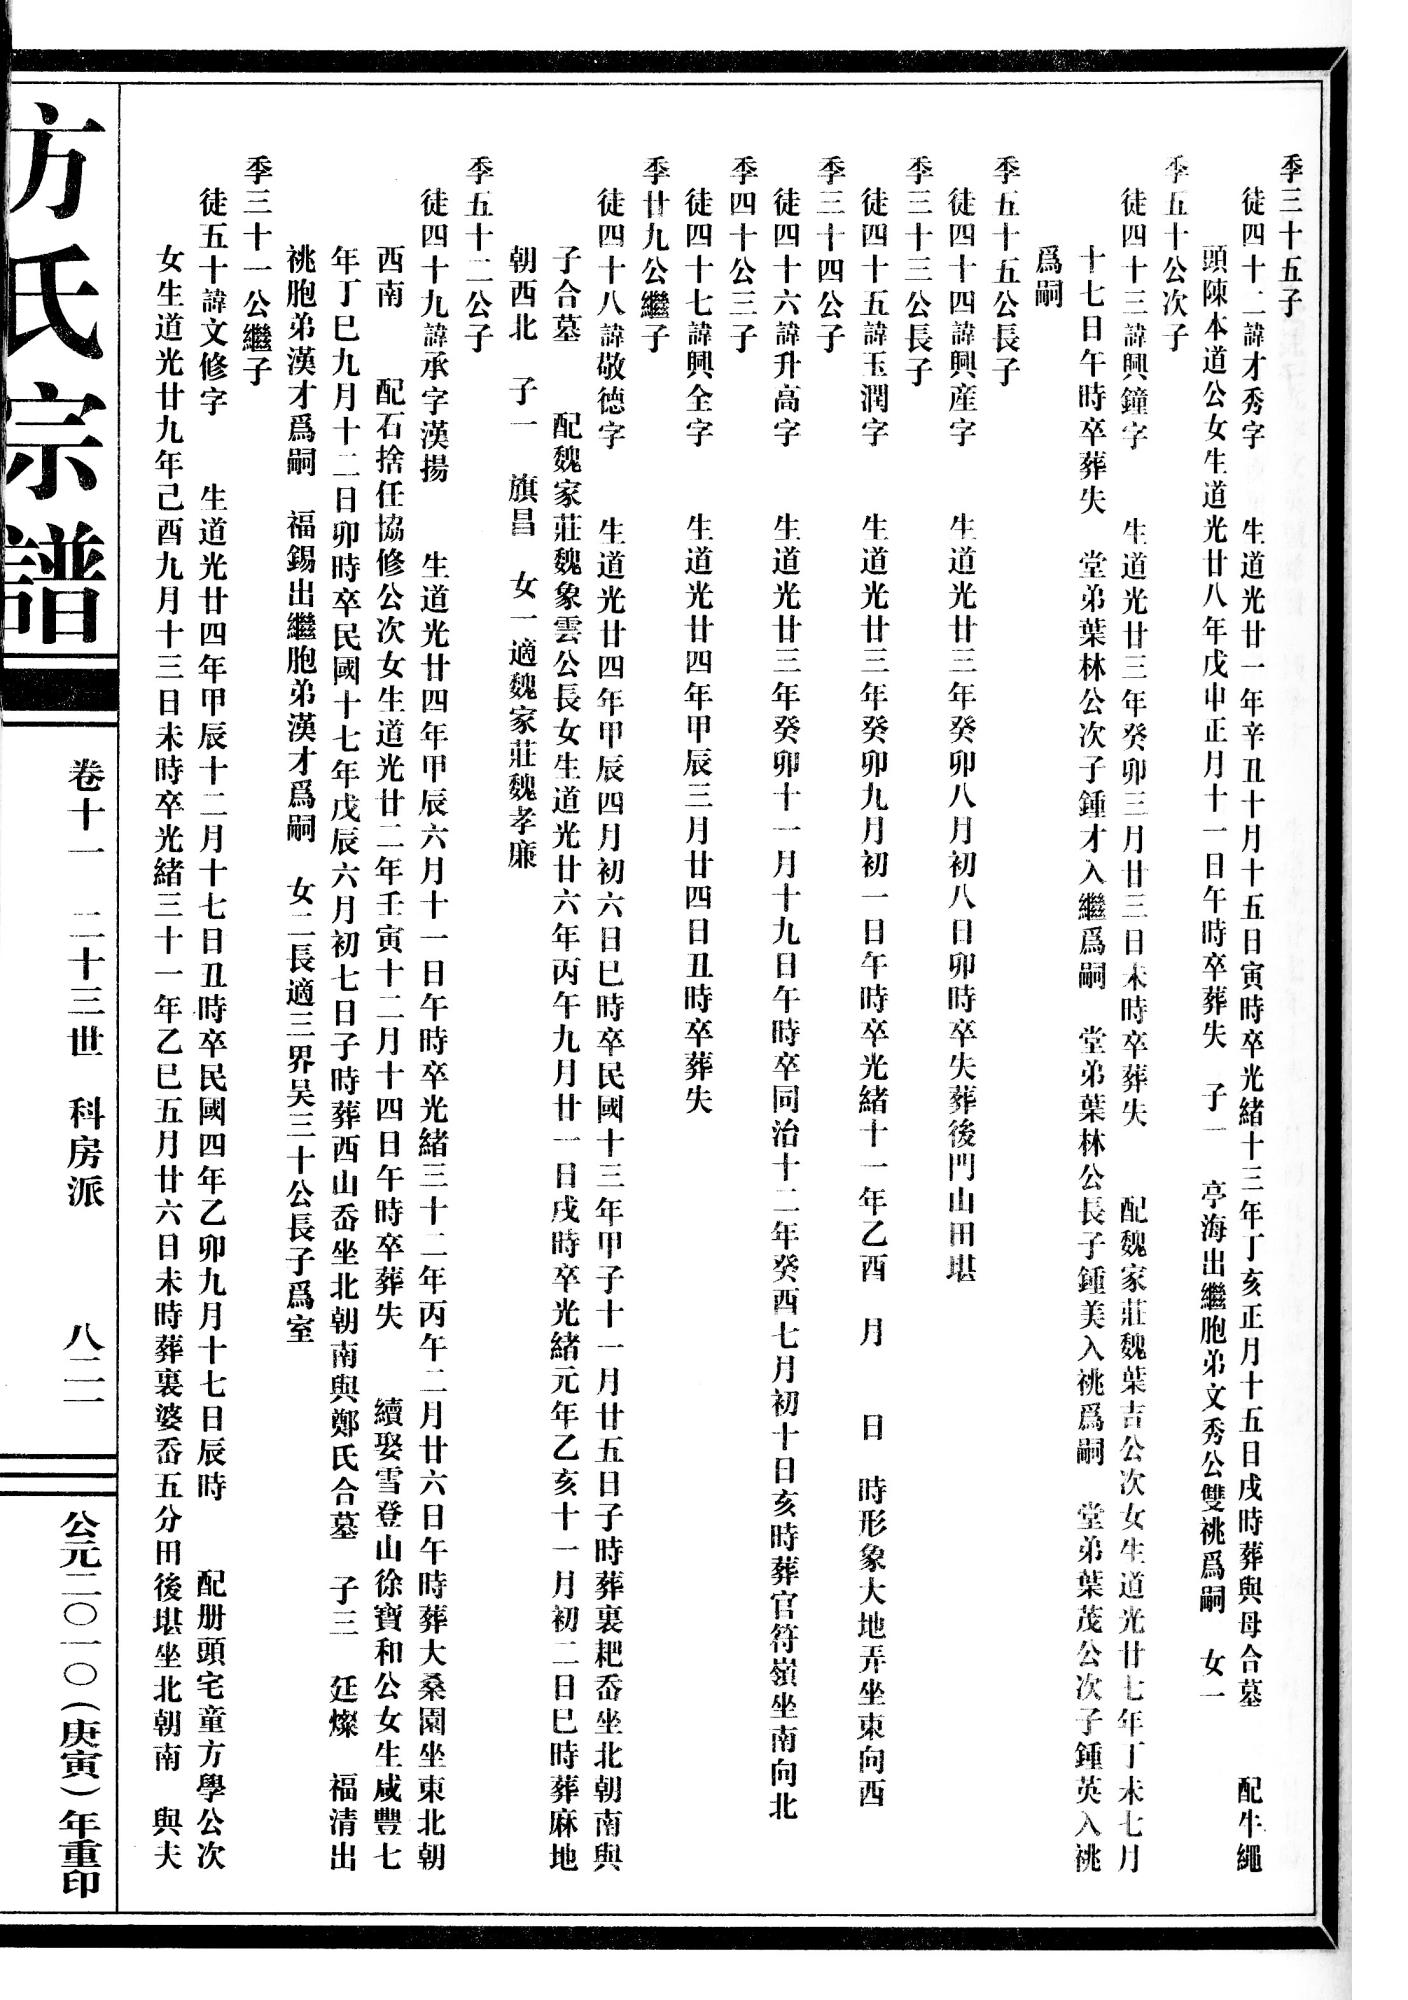 季三十五子
徒四十二諱才秀字　生道光廿一年辛丑十月十五日寅時卒光緒十三年丁亥正月十五日戌時葬與母合墓　配牛繩
頭陳本道公女生道光廿八年戊申正月十一日午時卒葬失　子一　亭海出繼胞弟文秀公雙祧爲嗣　女一
季五十公次子
徒四十三諱興鐘字　生道光廿三年癸卯三月廿三日未時卒葬失　配魏家莊魏葉吉公次女生道光廿七年丁未七月
十七日午時卒葬失　堂弟葉林公次子鍾才入繼爲嗣　堂弟葉林公長子鍾美入祧爲嗣　堂弟葉茂公次子鍾英入祧
爲嗣
季五十五公長子
徒四十四諱興産字　生道光廿三年癸卯八月初八日卯時卒失葬後門山田堪
季三十三公長子
徒四十五諱玉潤字　生道光廿三年癸卯九月初一日午時卒光緒十一年乙酉　月　日　時形象大地弄坐東向西
季三十四公子
徒四十六諱升高字　生道光廿三年癸卯十一月十九日午時卒同治十二年癸酉七月初十日亥時葬官符嶺坐南向北
季四十公三子
徒四十七諱興全字　生道光廿四年甲辰三月廿四日丑時卒葬失
季廿九公繼子
徒四十八諱敬德字　生道光廿四年甲辰四月初六日巳時卒民國十三年甲子十一月廿五日子時葬裏耙岙坐北朝南與
子合墓　配魏家莊魏象雲公長女生道光廿六年丙午九月廿一日戌時卒光緒元年乙亥十一月初二日巳時葬麻地
朝西北　子一　旗昌　女一適魏家莊魏孝廉
季五十二公子
徒四十九諱承字漢揚　生道光廿四年甲辰六月十一日午時卒光緒三十二年丙午二月廿六日午時葬大桑園坐東北朝
西南　配石捨任協修公次女生道光廿二年壬寅十二月十四日午時卒葬失　續娶雪登山徐寶和公女生咸豐七
年丁巳九月十二日卯時卒民國十七年戊辰六月初七日子時葬西山岙坐北朝南與鄭氏合墓　子三　廷燦　福清出
祧胞弟漢才爲嗣　福錫出繼胞弟漢才爲嗣　女二長適三界吴三十公長子爲室
季三十一公繼子
徒五十諱文修字　生道光廿四年甲辰十二月十七日丑時卒民國四年乙卯九月十七日辰時　配册頭宅童方學公次
女生道光廿九年己酉九月十三日未時卒光緒三十一年乙巳五月廿六日未時葬裏婆岙五分田後堪坐北朝南　與夫
方氏宗譜
卷十一　二十三世　科房派　八二一
公元二〇一〇（庚寅）年重印